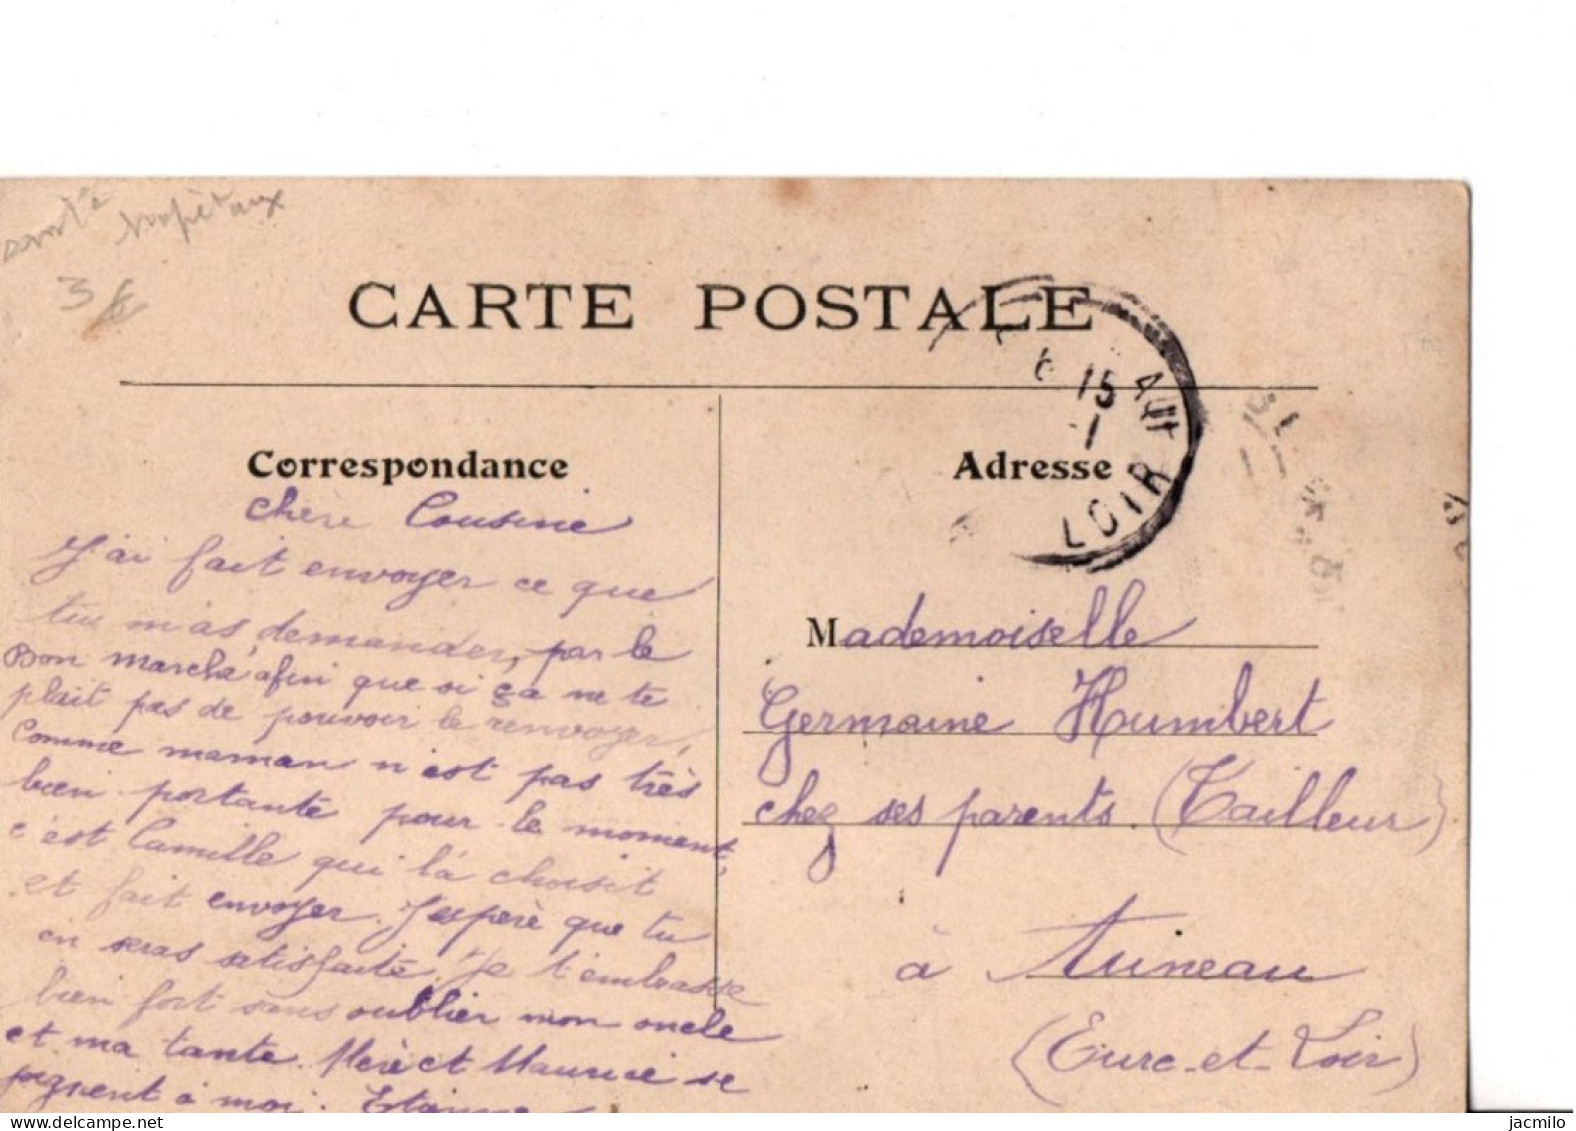 santé hopitaux
3 €
CARTE POSTALE
6 15
-1
LOIR
Correspondance
chère Cousine
J'ai fait envoyer ce que
tu m'as demander, par le
Bon marché afin que si ça ne te
plait pas de pouvoir le renvoyer,
Comme maman n'est pas très
bien portante pour le moment,
c'est Camille qui l'a choisit
et fait envoyer. J'espère que tu
en seras satisfaite. Je t'embrasse
bien fort sans oublier mon oncle
et ma tante. Mère et Maurice se
joignent à moi. Etienne
Adresse
Mademoiselle
Germaine Humbert
chez ses parents. (Tailleur)
à Auneau
(Eure-et-Loir)
jacmilo